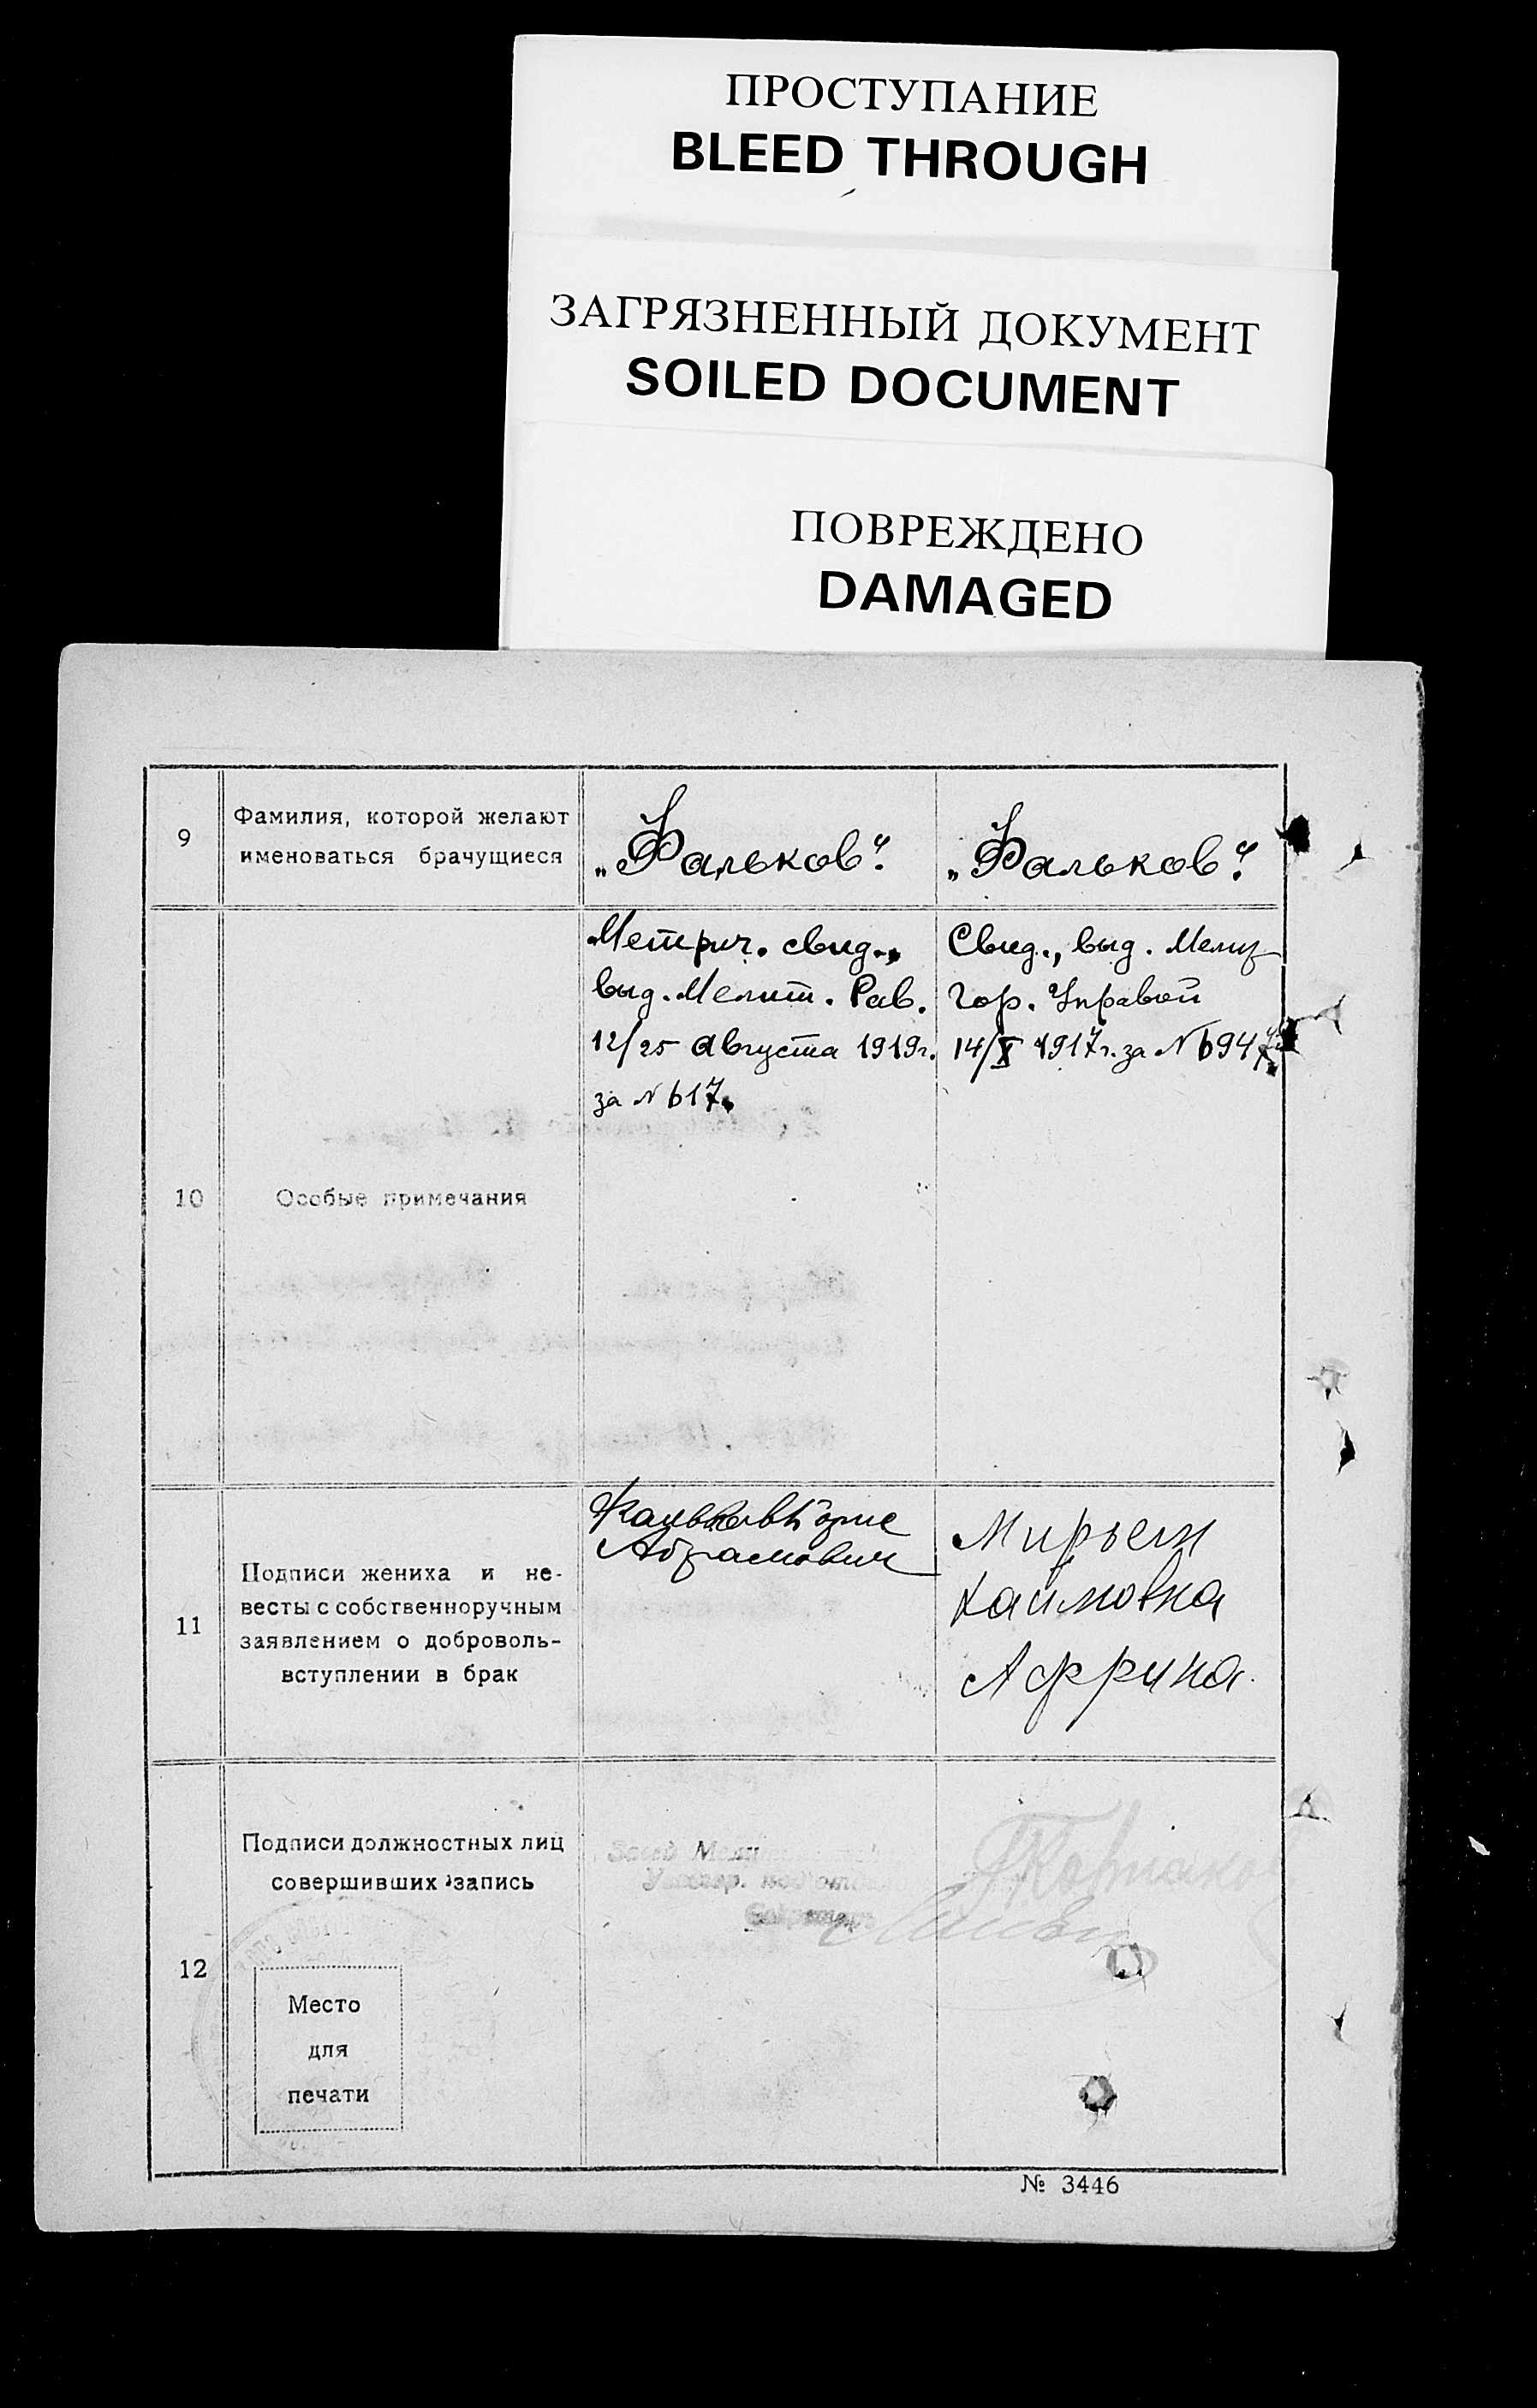 ПРОСТУПАНИЕ
BLEED THROUGH
ЗАГРЯЗНЕННЫЙ ДОКУМЕНТ
SOILED DOCUMENT
ПОВРЕЖДЕНО
DAMAGED
9
Фамилия, которой желают
именоваться брачущиеся
„Фальков“.
„Фальков“.
10
Особые примечания
Метрич. свид.,
выд. Мелит. Рав.
12/25 августа 1919г.
за № 617.
Свид., выд. Мелит
Гор. Управой
14/X 1917г. за № 6947
11
Подписи жениха и не-
весты с собственноручным
заявлением о доброволь-
вступлении в брак
Абрамович
Мирьем
Хаимовна
Аффрина.
12
Подписи должностных лиц
совершивших запись
Место
для
печати
№ 3446